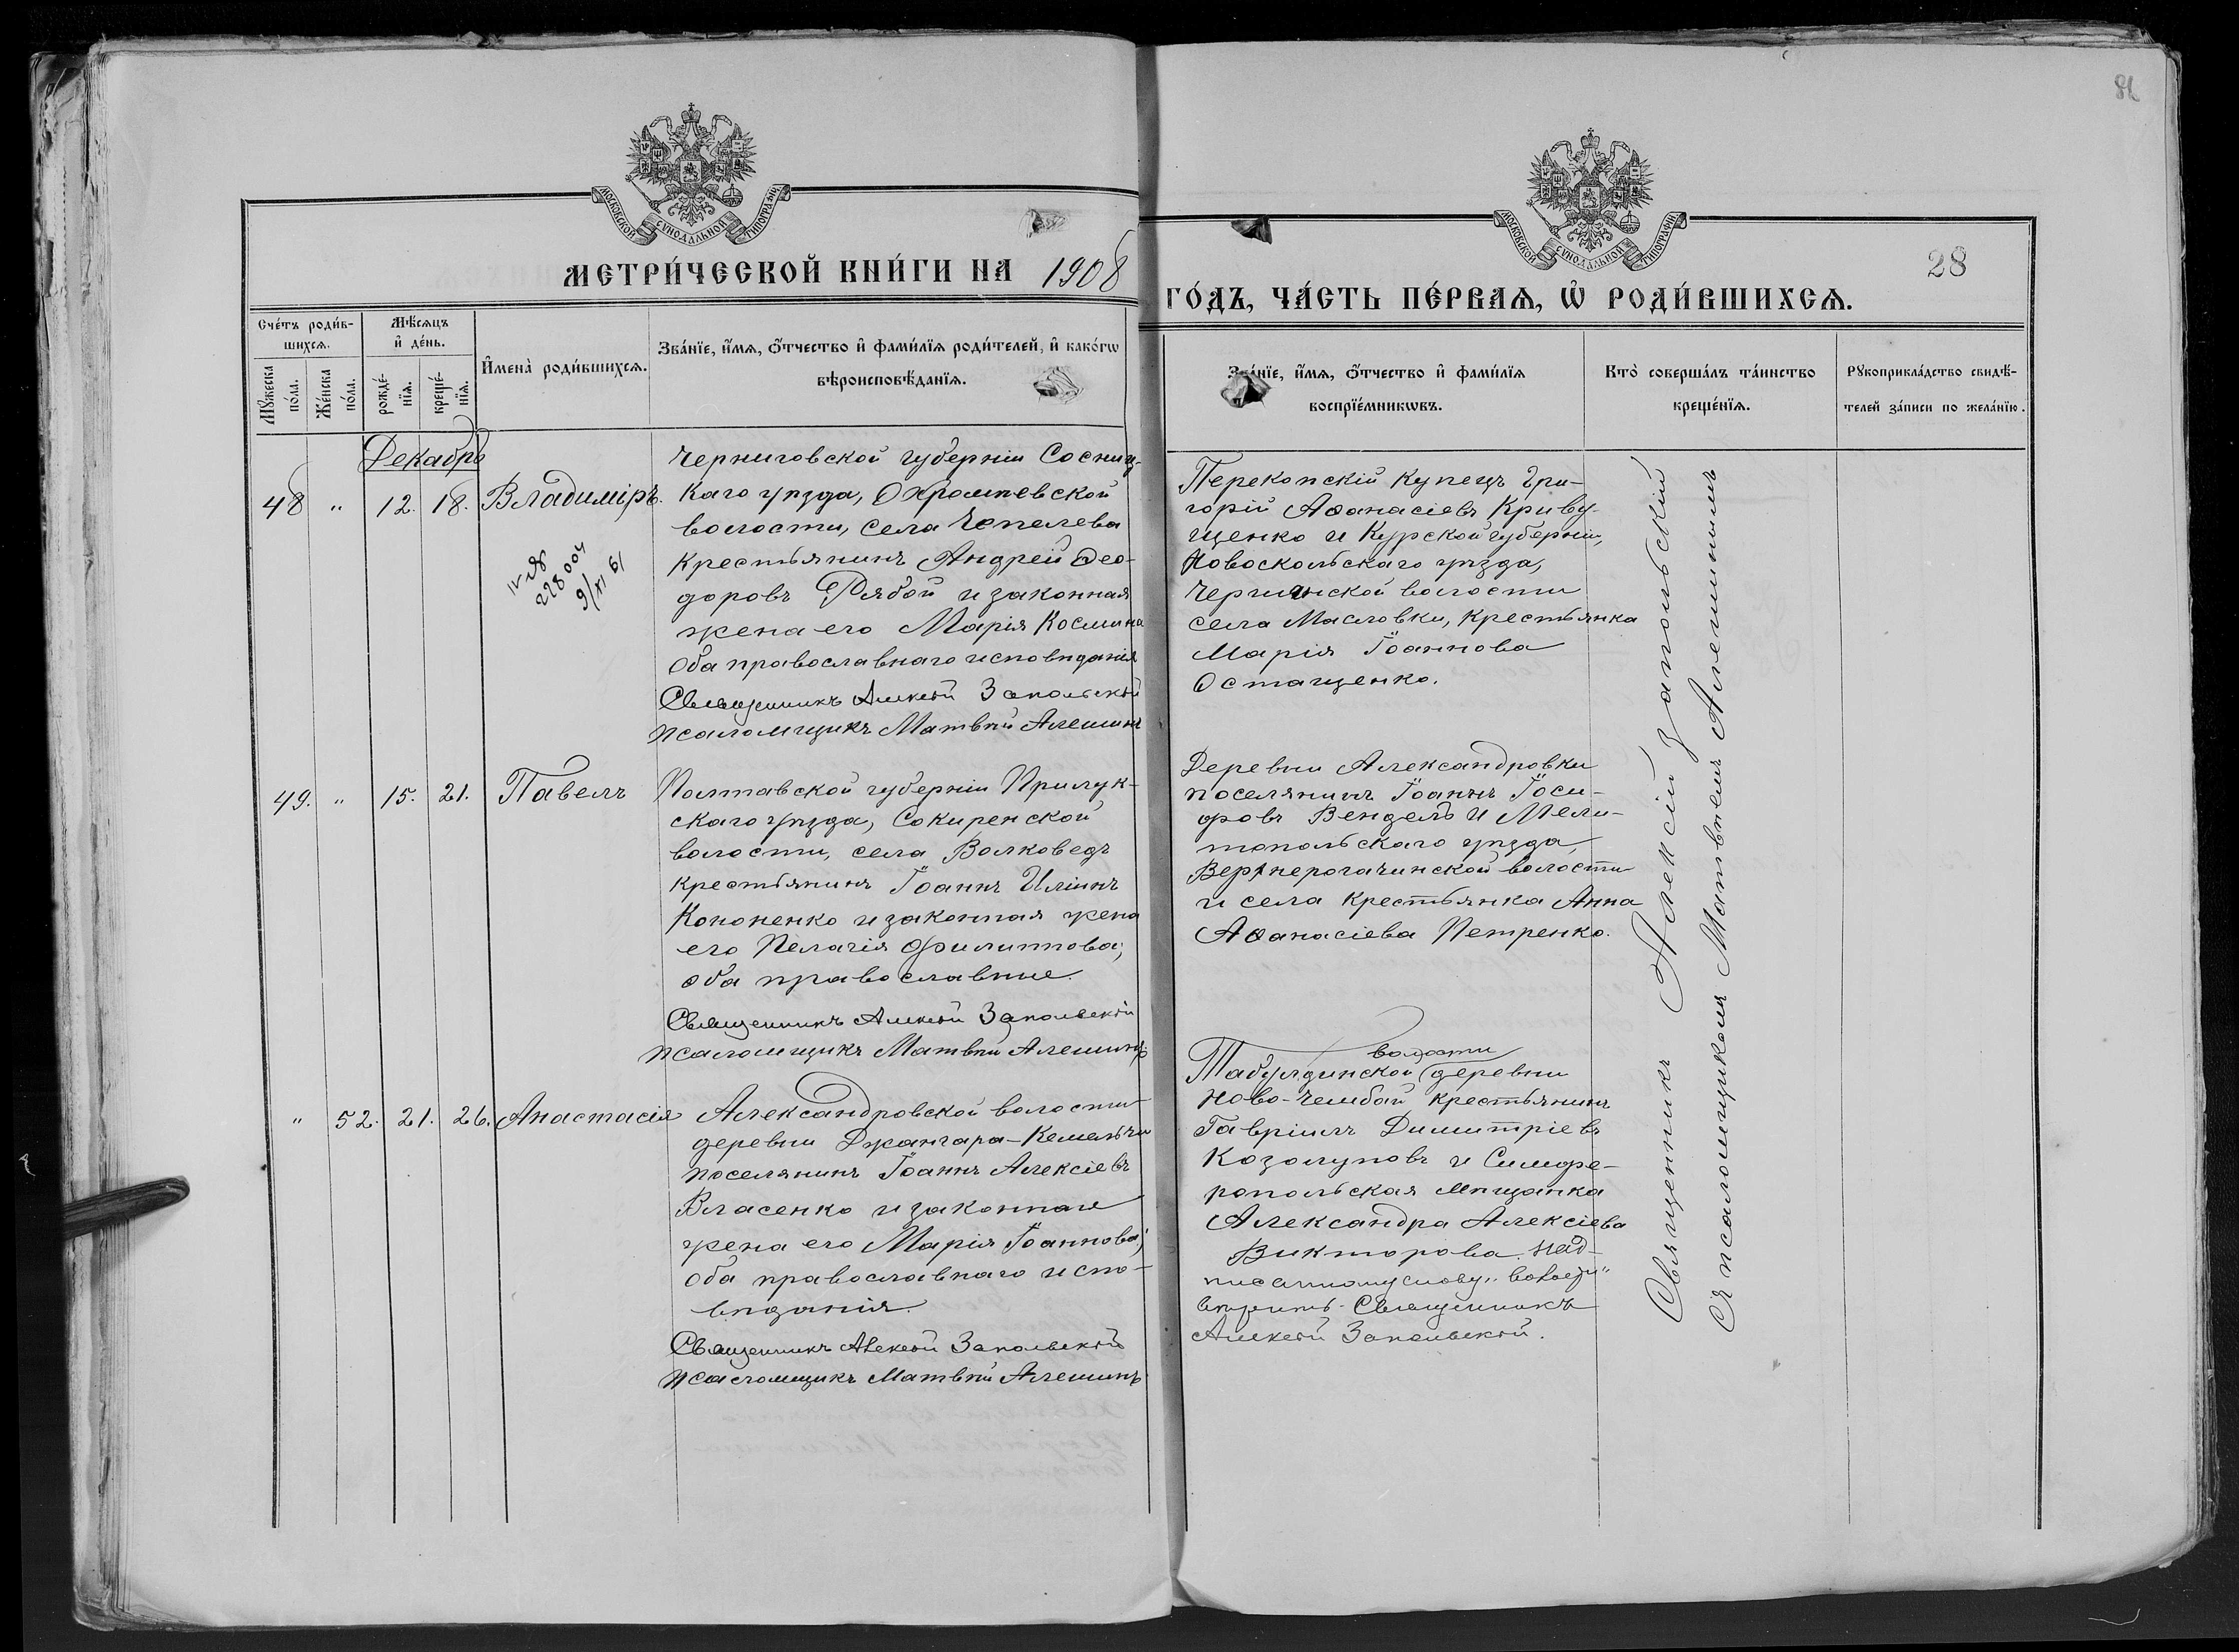 81
МОСКОВСКОЙ СѴНОДАЛЬНОЙ ТИПОГРАФІИ
МОСКОВСКОЙ СѴНОДАЛЬНОЙ ТИПОГРАФІИ
28
МЕТРИ́ЧЕСКОЙ КНИ́ГИ НА 1908
ГО́ДЪ, ЧА́СТЬ ПЕ́РВАѦ, Ѡ҆ РОДИ́ВШИХСѦ.
Сче́тъ роди́в-
шихсѧ.
Мꙋ́жеска
по́ла.
Же́нска
по́ла.
Мѣ́сѧцъ
и҆ де́нь.
рожде́-
нїѧ.
креще́-
нїѧ.
И҆мена̀ роди́вшихсѧ.
Зва́нїе, и҆́мѧ, ѻ҆́тчество и҆ фами́лїѧ роди́телей, и҆ како́гѡ
вѣроисповѣ́данїѧ.
Зва́нїе, и҆́мѧ, ѻ҆́тчество и҆ фами́лїѧ
воспрїе́мникѡвъ.
Кто̀ соверша́лъ та́инство
креще́нїѧ.
Рꙋкоприкла́дство свидѣ́-
телей за́писи по жела́нїю.
Декабрь
48 " 12. 18. Владиміръ.
Черниговской губерніи Сосниц-
каго уѣзда, Охромѣевской
волости, села Чепелева
крестьянинъ Андрей Ѳео-
доровъ Рябой и законная
жена его Марія Космина
оба православнаго исповѣданія
Священникъ Алексій Запольскій
псаломщикъ Матвѣй Алешинъ
228004
9/XI 61
Перекопскій купецъ Гри-
горій Аѳанасіевъ Криву-
щенко и Курской губерніи,
Новоскольскаго уѣзда,
Чернянской волости
села Масловки, крестьянка
Марія Іоаннова
Остащенко.
49. " 15. 21. Павелъ
Полтавской губерніи Прилук-
скаго уѣзда, Сокиренской
волости, села Волковедъ
крестьянинъ Іоаннъ Иліинъ
Кононенко и законная жена
его Пелагія Филиппова;
оба православные.
Священникъ Алексій Запольскій
псаломщикъ Матвѣй Алешинъ
Деревни Александровки
поселянинъ Іоаннъ Іоси-
фовъ Вендель и Мели-
топольскаго уѣзда,
Верхнерогачинской волости
и села крестьянка Анна
Аѳанасіева Петренко.
" 52. 21. 26. Анастасія
Александровской волости
деревни Джангара-Кемельчи
поселянинъ Іоаннъ Алексіевъ
Власенко и законная
жена его Марія Іоаннова;
оба православнаго испо-
вѣданія.
Священникъ Алексій Запольскій
псаломщикъ Матвѣй Алешинъ
волости
Табулдинской деревни
Ново-Чембай крестьянинъ
Гавріилъ Димитріевъ
Козолуповъ и Симфе-
ропольская мѣщанка
Александра Алексіева
Викторова. Над-
писанному слову "волости"
вѣрить. Священникъ
Алексій Запольскій.
Священникъ Алексій Запольскій
съ псаломщикомъ Матвѣемъ Алешинымъ